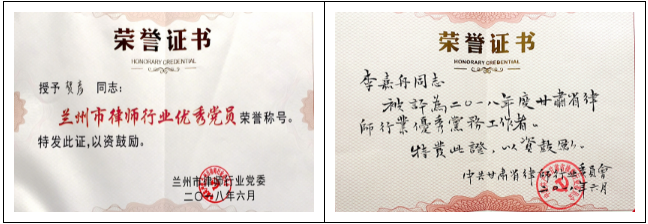 荣誉证书
HONORARY CREDENTIAL
授予 同志:
兰州市律师行业优秀党员荣誉称号。
特发此证,以资鼓励。
兰州市律师行业党委
二〇一八年六月
荣誉证书
HONORARY CREDENTIAL
李嘉舟同志
被評為二〇一八年度甘肃省律
师行業優秀黨務工作者。
特發此證,以資鼓勵。
中共甘肃省律师行业委員會
二〇一八年六月